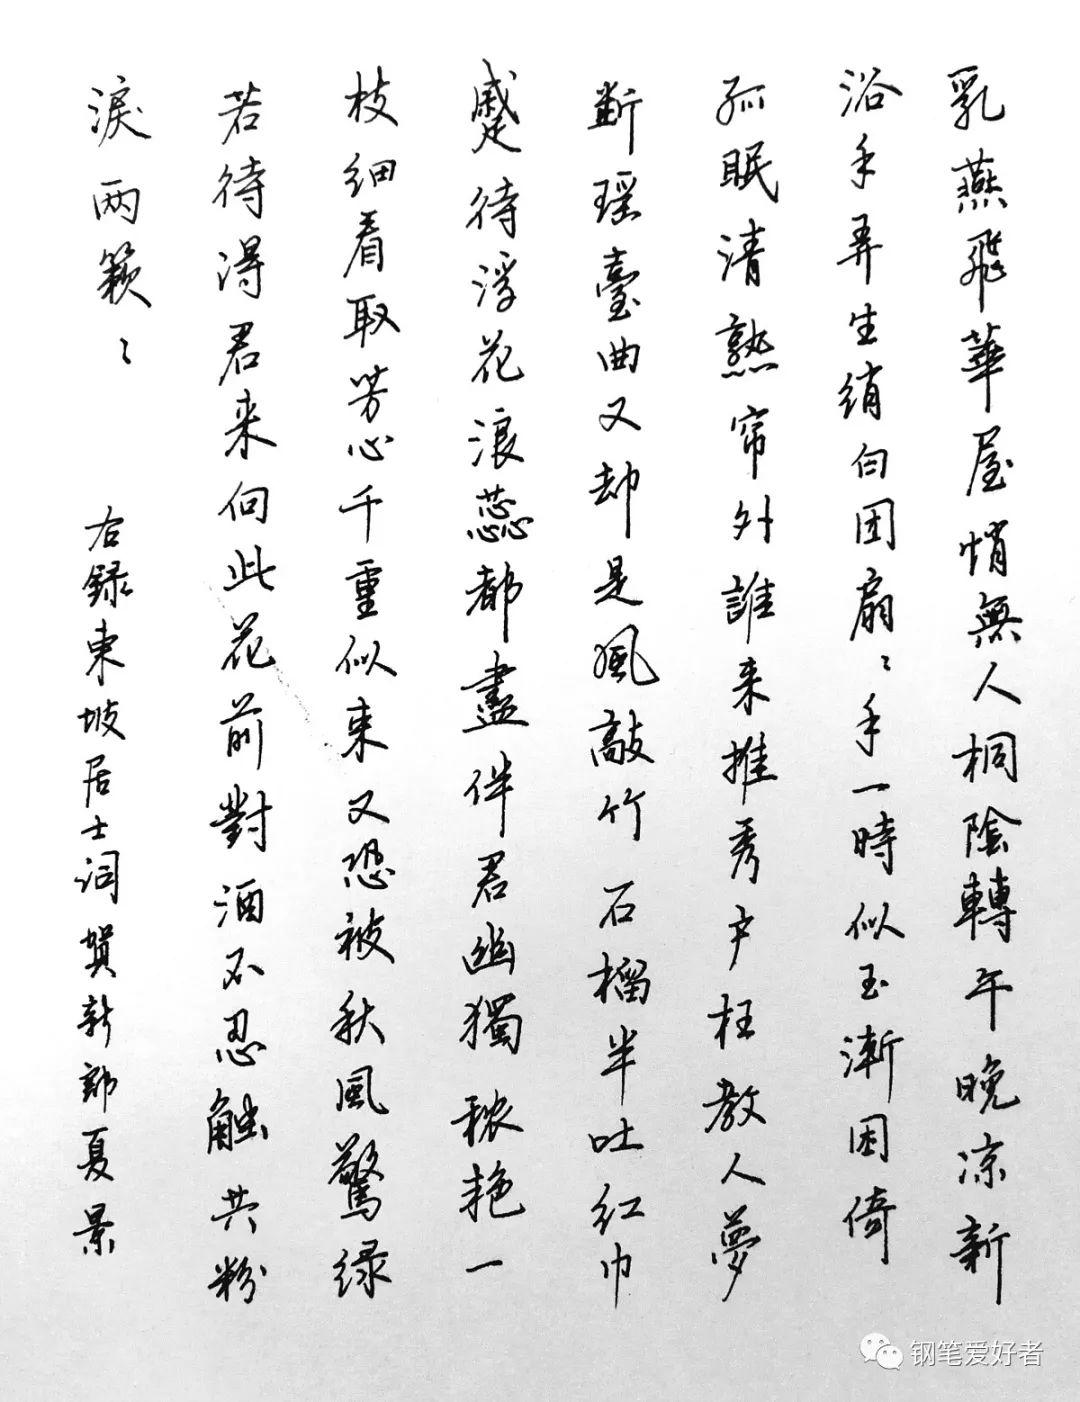 乳燕飛華屋悄無人桐陰轉午晚凉新
浴手弄生绡白团扇〻手一時似玉漸困倚
孤眠清熟帘外誰来推秀户枉教人夢
断瑶臺曲又却是風敲竹石榴半吐红巾
蹙待浮花浪蕊都盡伴君幽獨秾艳一
枝细看取芳心千重似束又恐被秋風驚绿
若待得君来向此花前對酒不忍触共粉
淚两簌〻
右録東坡居士词賀新郎夏景
钢笔爱好者